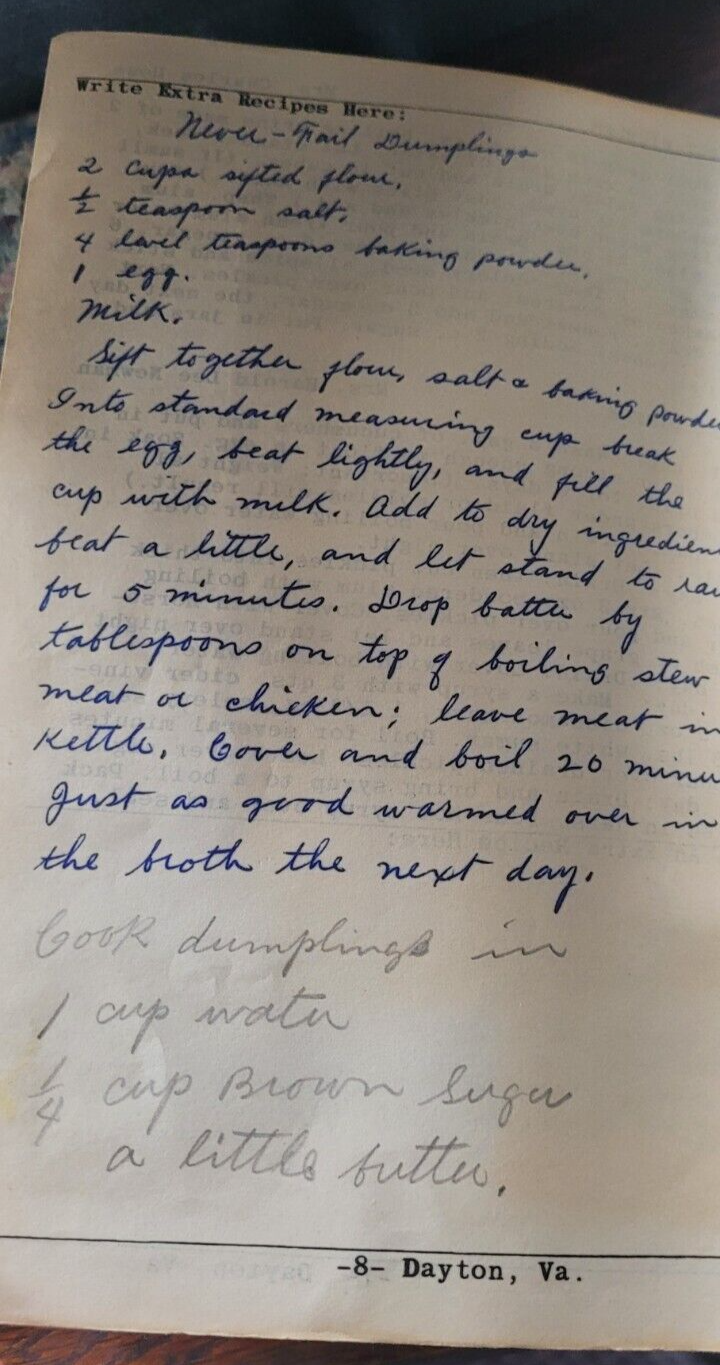 Write Extra Recipes Here:
Never-Fail Dumplings
2 cups sifted flour,
1/2 teaspoon salt,
4 level teaspoons baking powder,
1 egg.
Milk.
Sift together flour, salt & baking powde
Into standard measuring cup break
the egg, beat lightly, and fill the
cup with milk. Add to dry ingredien
beat a little, and let stand to
for 5 minutes. Drop batter by
tablespoons on top of boiling stew
meat or chicken; leave meat in
kettle. Cover and boil 20 minu
Just as good warmed over in
the broth the next day.
Cook dumplings in
1 cup water
1/4 cup Brown Suger
a little butter.
-8- Dayton, Va.